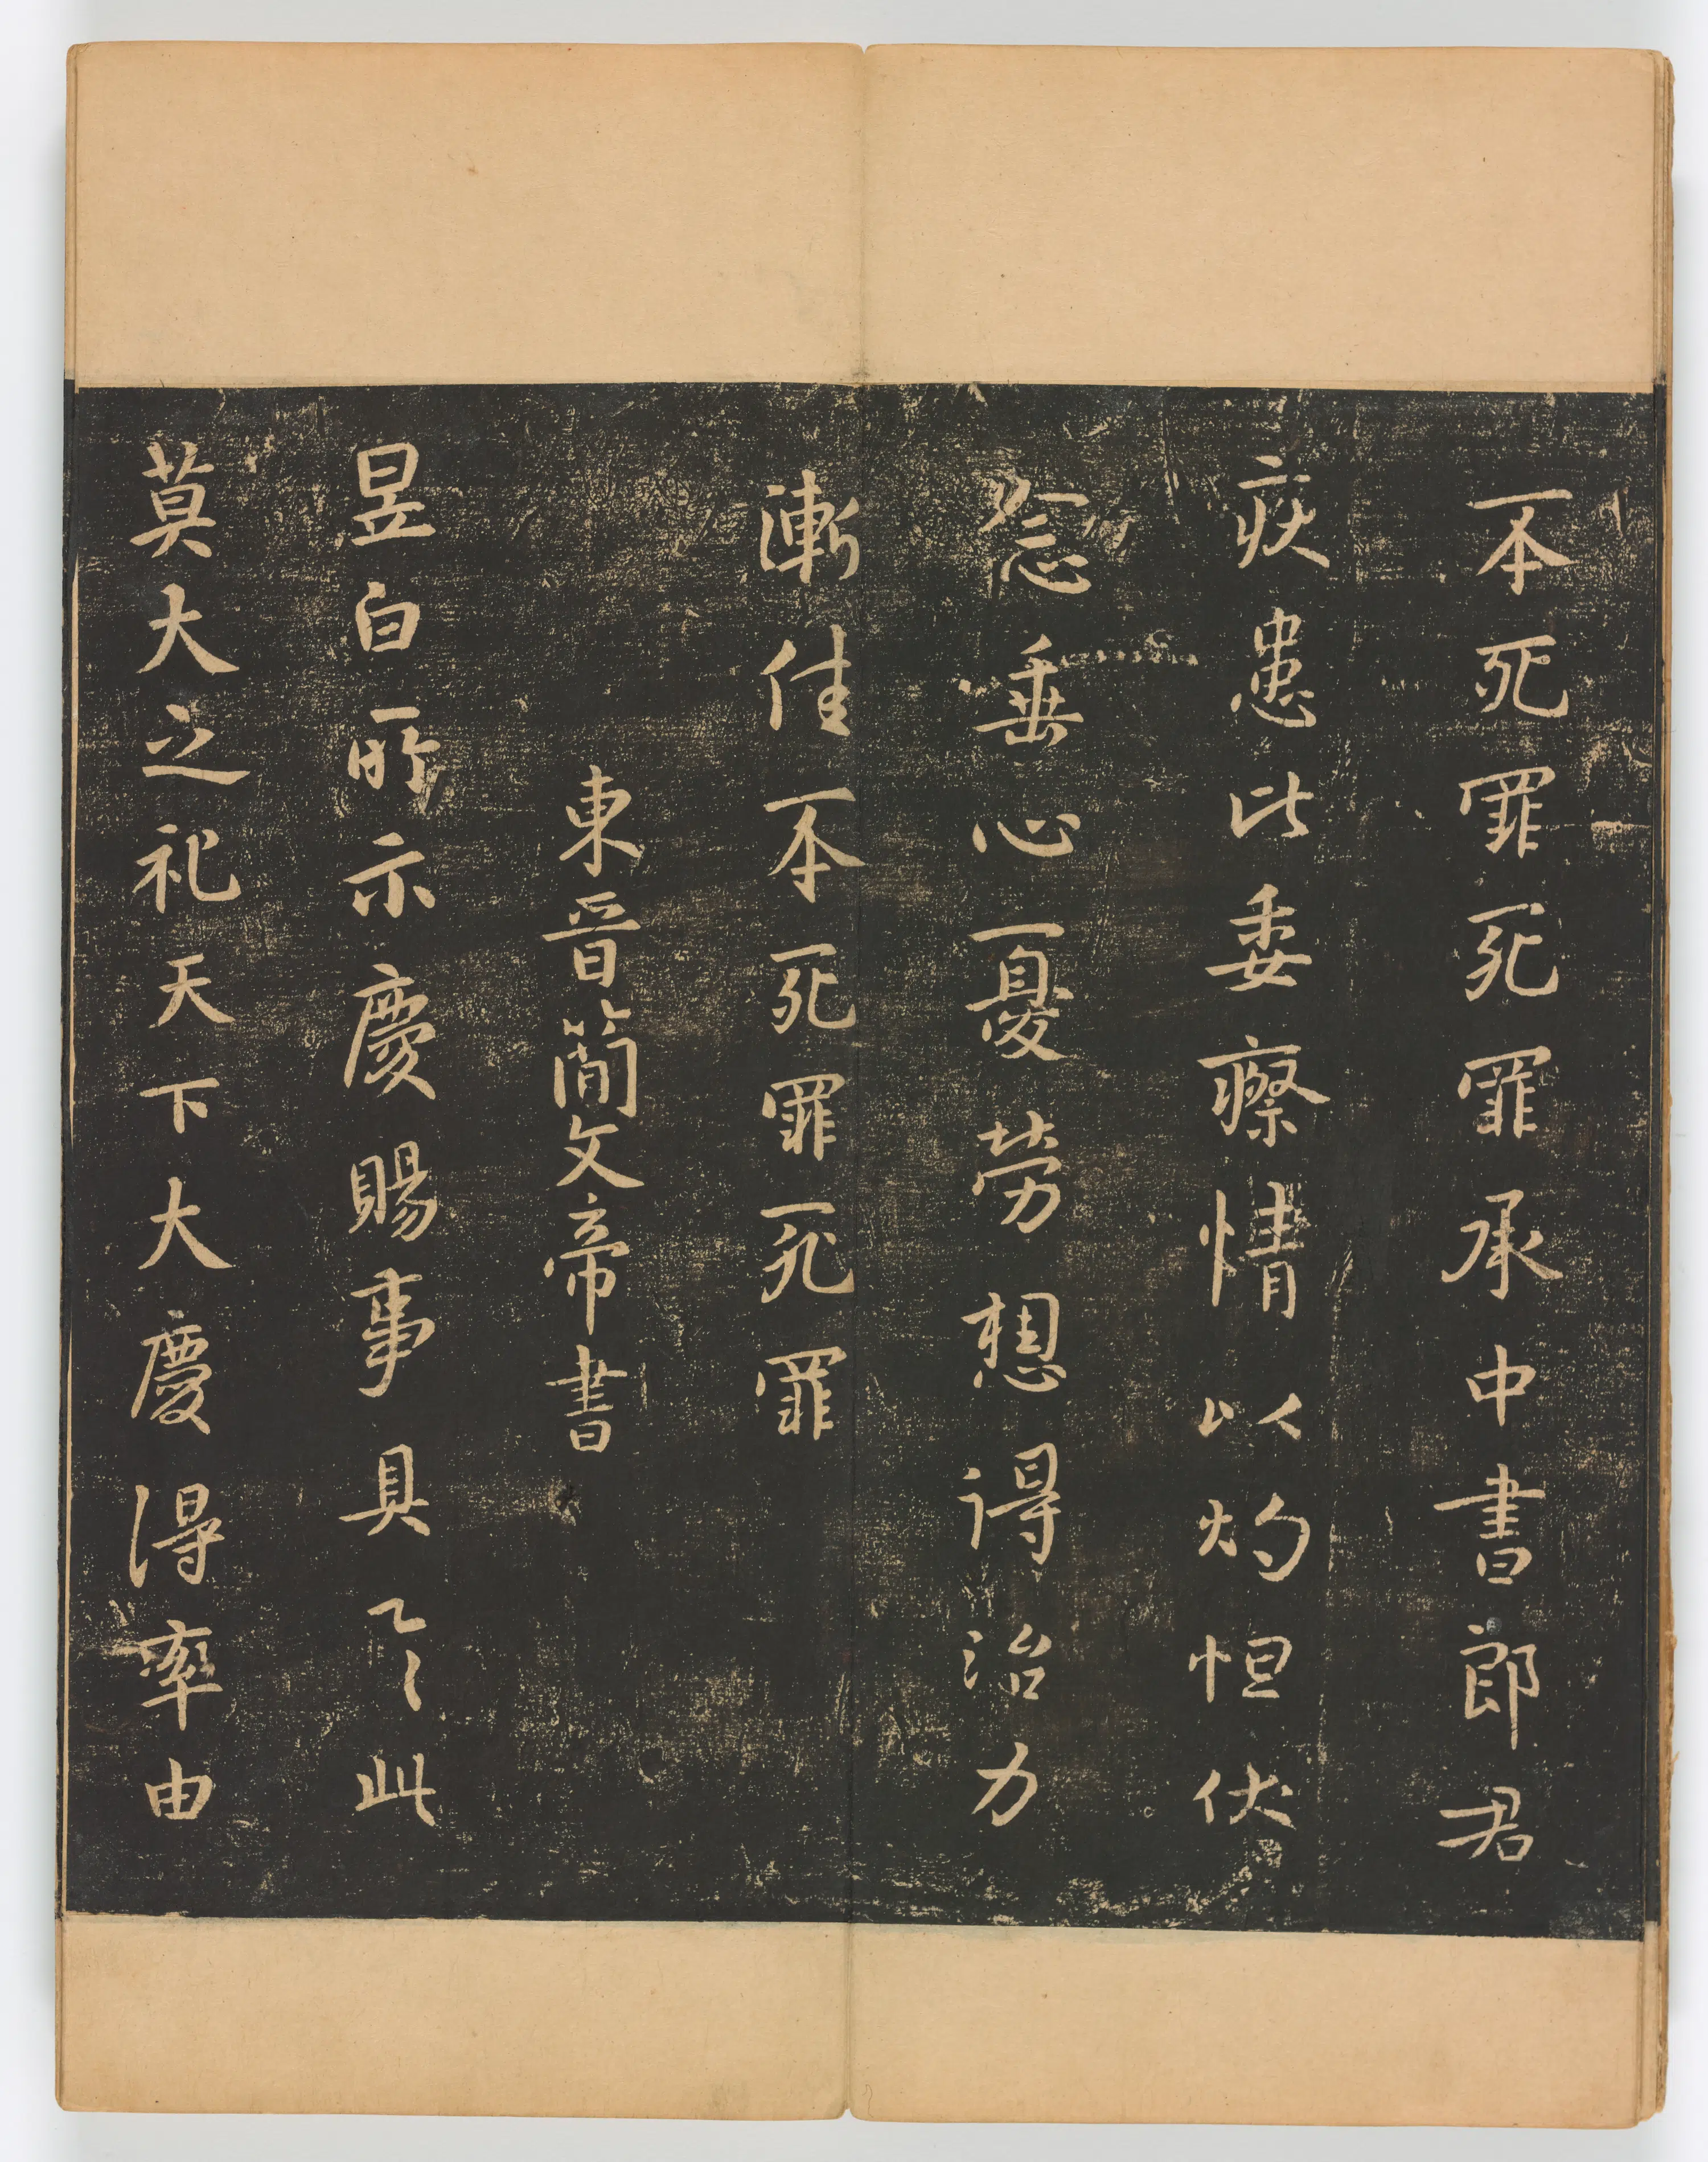 丕死罪死罪承中書郎君
疾患比委瘵情以灼怛伏
念垂心憂勞想得治力
漸佳丕死罪死罪
東晉簡文帝書
昱白所示慶賜事具了々此
莫大之礼天下大慶得率由